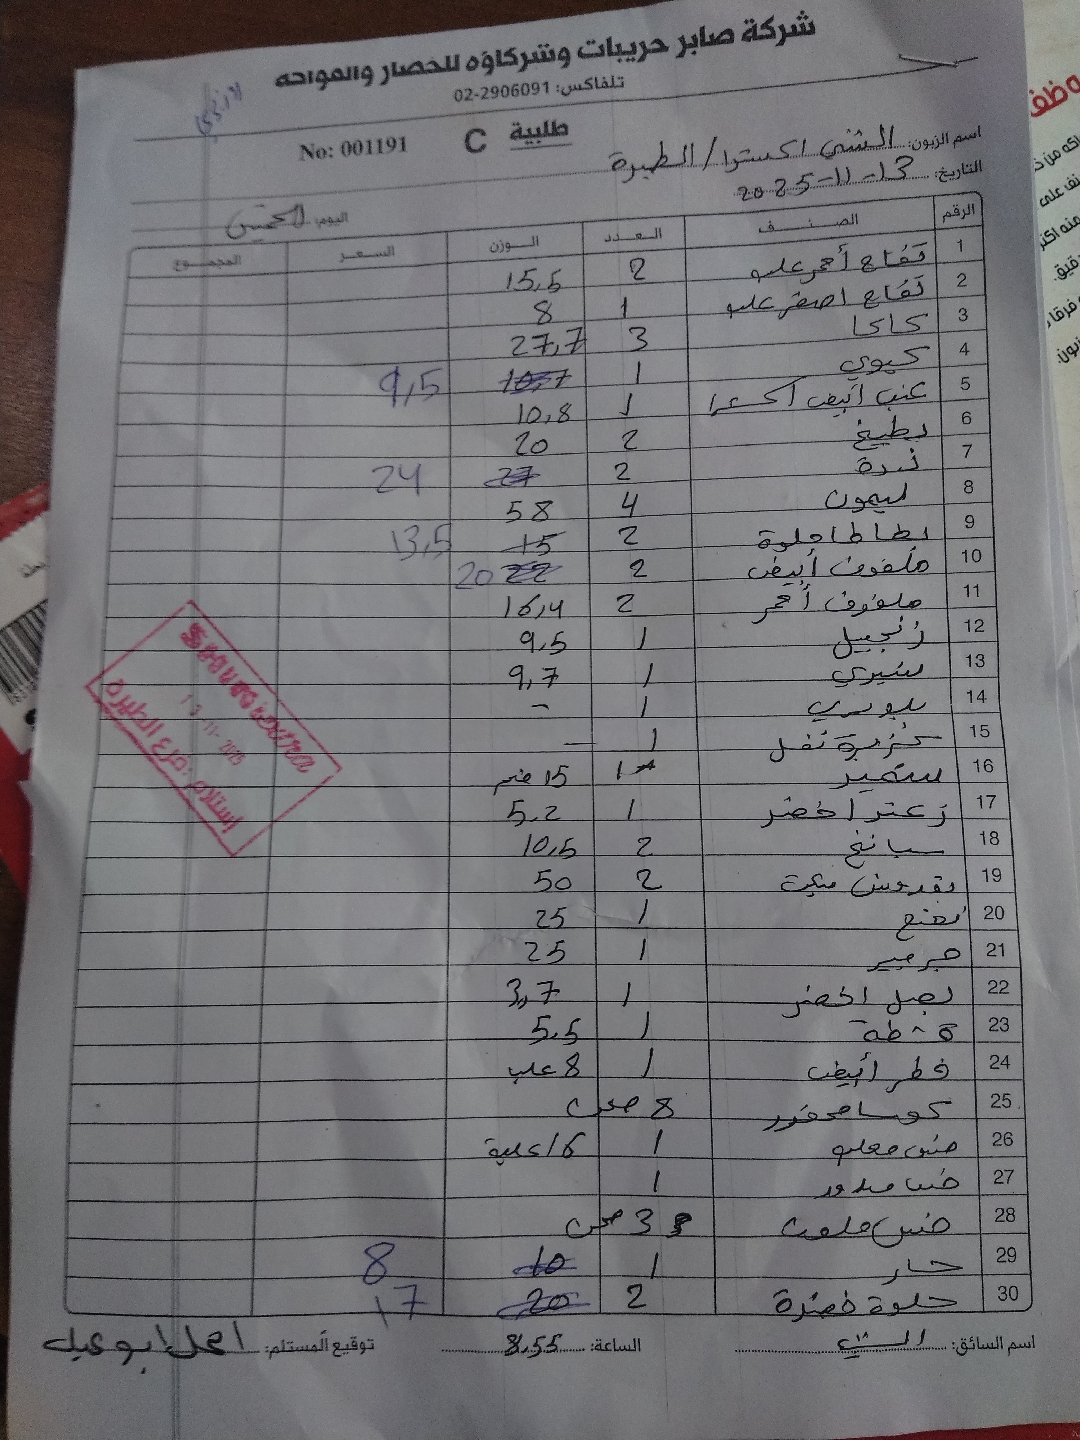 شركة صابر حريبات وشركاؤه للخضار والفواكه
تلفاكس: 02-2906091
طلبية C No: 001191
اسم الزبون: الشني اكسترا / الطيرة
التاريخ: 13-11-2025
اليوم: الخميس
الرقم الصنف العدد الوزن السعر المجموع
1 تفاح أحمر علب 2 15,5
2 تفاح اصفر علب 1 8
3 كاكا 3 27,7
4 كيوي 1 10,7 9,5
5 عنب أبيض اكسترا 1 10,8
6 بطيخ 2 20
7 ندرة 2 27 24
8 ليمون 4 58
9 بطاطا حلوة 2 15 13,5
10 ملفوف أبيض 2 22 20
11 ملفوف أحمر 2 16,4
12 زنجبيل 1 9,5
13 شيري 1 9,7
14 1 -
15 كزبرة 1 -
16 1 15
17 زعتر اخضر 1 5.2
18 سبانخ 2 10,5
19 بقدونس 2 50
20 نعنع 1 25
21 جرجير 1 25
22 بصل اخضر 1 3,7
23 قشطة 1 5.5
24 فطر أبيض 1 8 علب
25 كوسا محفور 8 صحن
26 خس 1 16 علبة
27 خس مدور 1
28 خس ملون 3 صحن
29 حار 1 10 8
30 حلوة خضرة 2 20 17
استلام : فرع الطيرة
اسم السائق: الساعة: 8.55 توقيع المستلم: